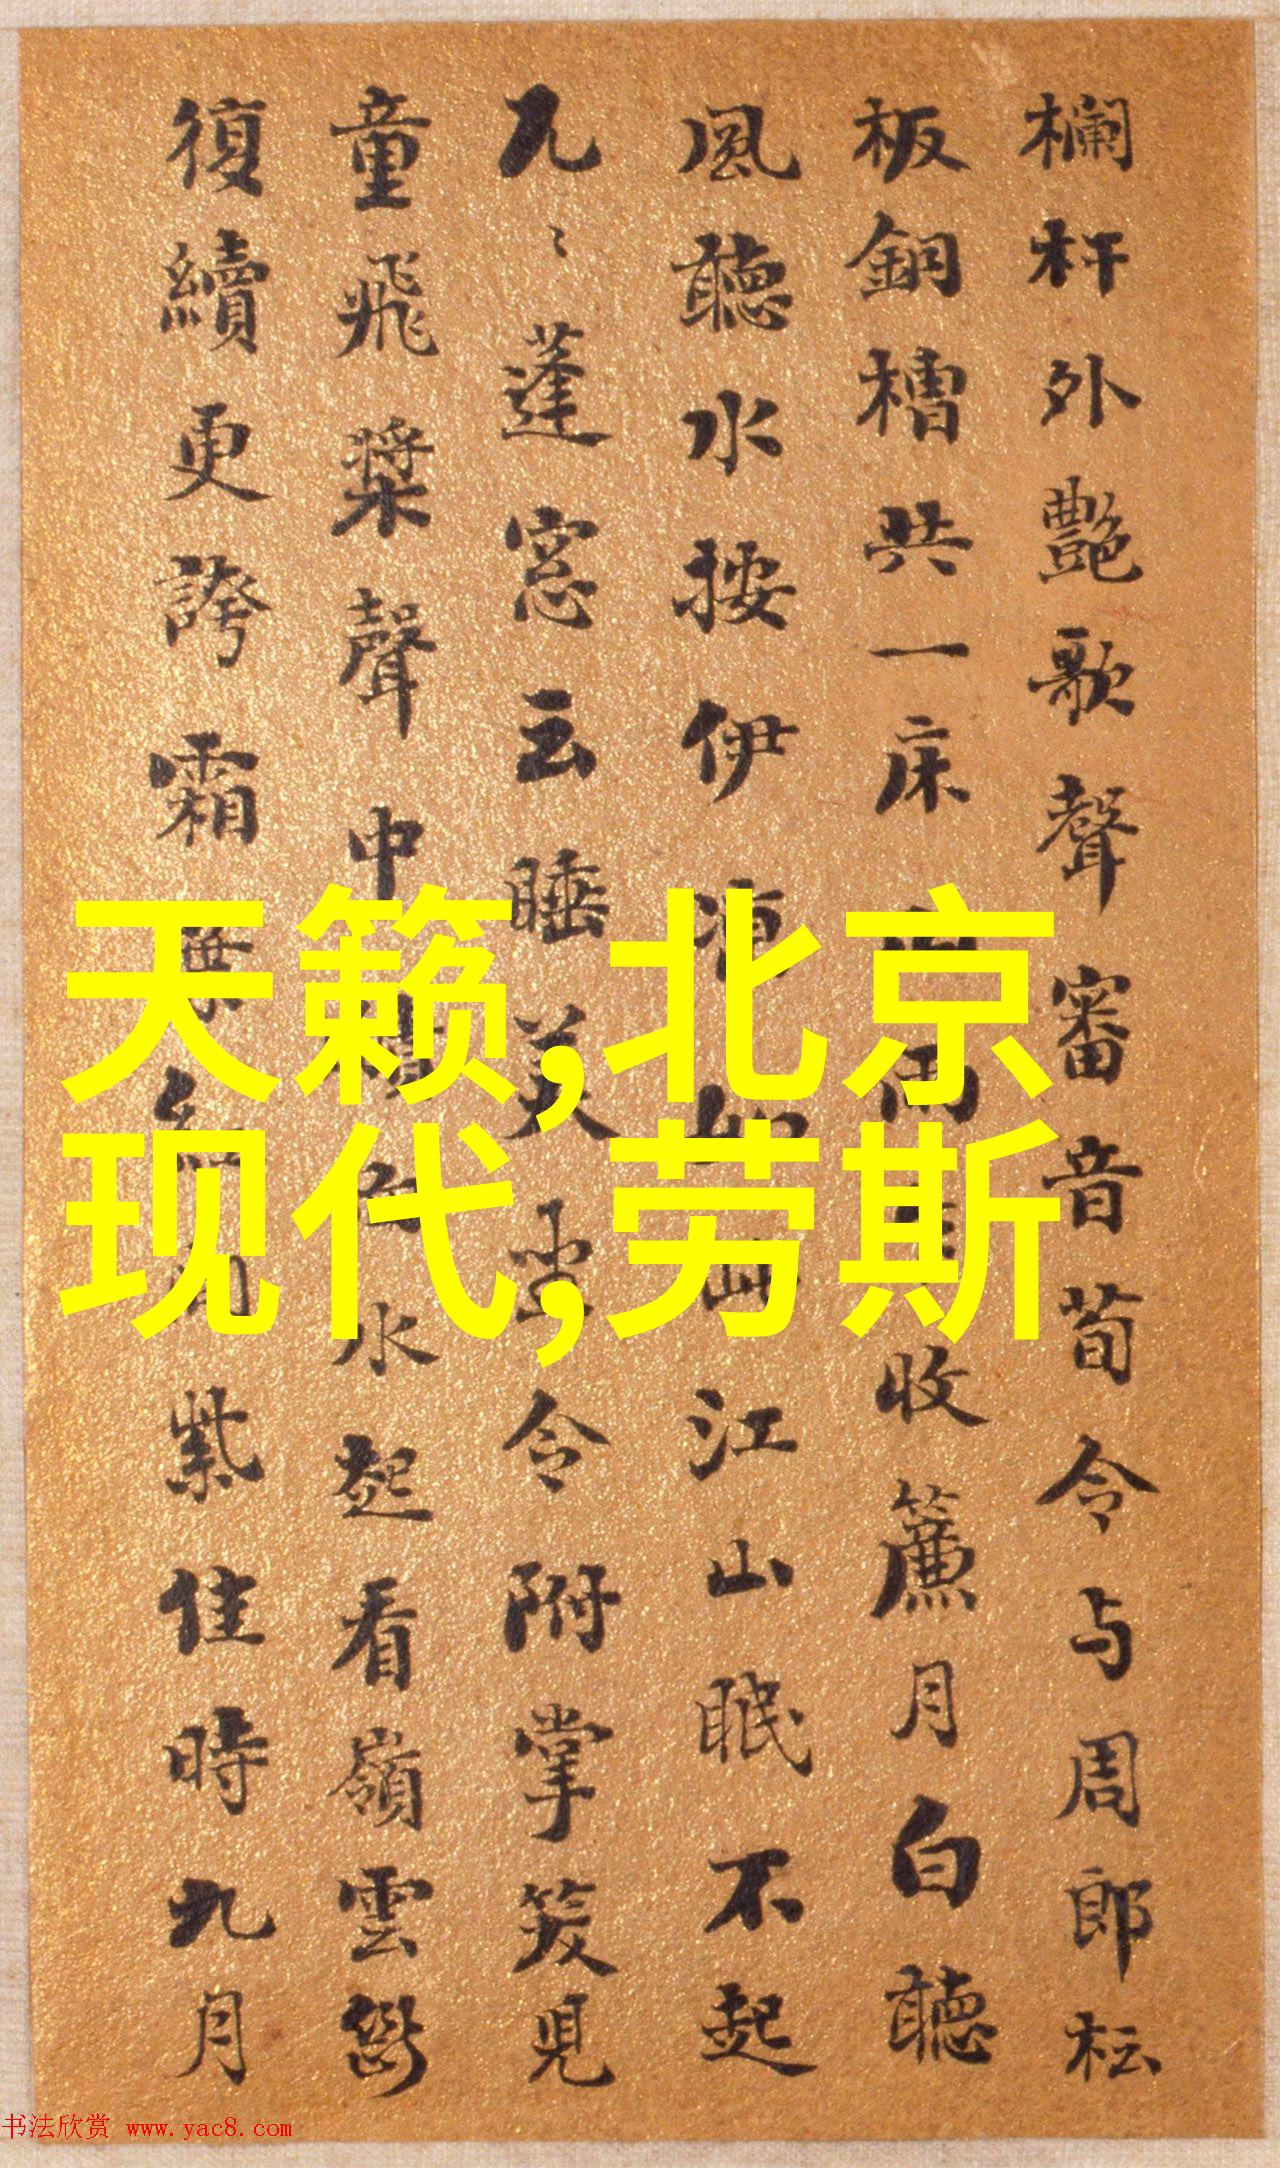 欄杆外艷歌聲審音荀令与周郎枟
板銅槽共一床雨收簾月白聽
風聽水按伊涼如此江山眠不起
九〻蓬窓云睡美坐令附掌笑見
童飛槳聲中水起看嶺雲
復續更誇霜紫佳時九月
天籁,北京
现代,劳斯
书法欣赏 www.yac8.com